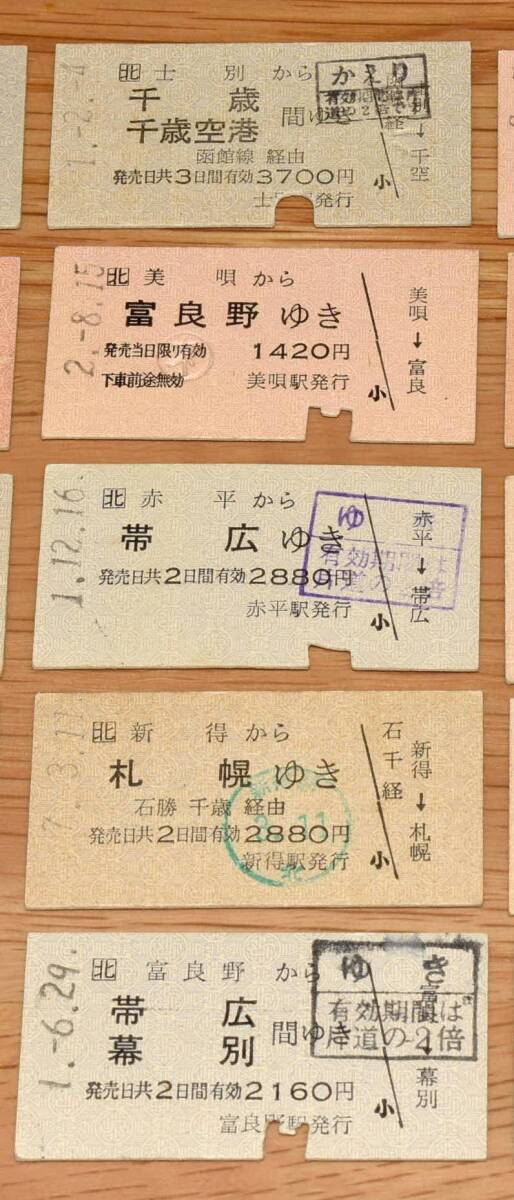 北 士別から
千歳
千歳空港 間ゆき
函館線 経由
発売日共3日間有効3700円
発行
小
かえり
→千空
2.-8.15
北 美唄から
富良野ゆき
発売当日限り有効 1420円
下車前途無効 美唄駅発行
小
美唄→富良
1.12.16.
北 赤平から
帯広ゆき
発売日共2日間有効2880円
赤平駅発行
小
ゆ
有効期間は
片道の 倍
赤平→帯広
3.11
北 新得から
札幌ゆき
石勝 千歳 経由
発売日共2日間有効2880円
新得駅発行
小
石千経
新得→札幌
11
北
1.-6.29.
北 富良野から
帯広
幕別 間ゆき
発売日共2日間有効2160円
富良野駅発行
小
ゆき
有効期間は
片道の2倍
富良→幕別